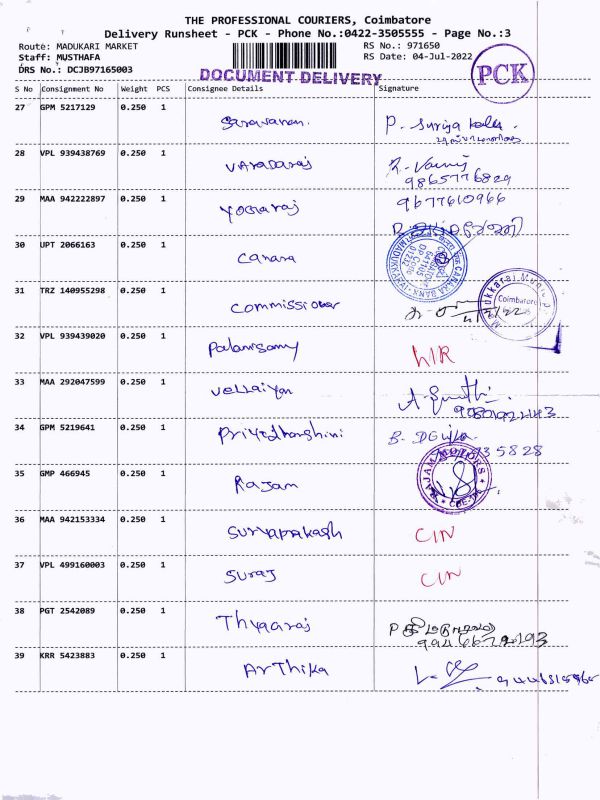 THE PROFESSIONAL COURIERS, Coimbatore
Delivery Runsheet - PCK - Phone No.:0422-3505555 - Page No.:3
Route: MADUKARI MARKET RS No.: 971650
Staff: MUSTHAFA RS Date: 04-Jul-2022
DRS No.: DCJB97165003
DOCUMENT DELIVERY
PCK
S No Consignment No Weight PCS Consignee Details Signature
27 GPM 5217129 0.250 1 Saravanan. P. Suriya
28 VPL 939438769 0.250 1 Varadaraj
9865776829
29 MAA 942222897 0.250 1 Yogaraj 9677610966
30 UPT 2066163 0.250 1 Canara
CANARA BANK
31 TRZ 140955298 0.250 1 Commissioner
Coimbatore
32 VPL 939439020 0.250 1 Palanisamy
33 MAA 292047599 0.250 1 Vellaiyan
34 GPM 5219641 0.250 1 Priyadharshini B.
35 GMP 466945 0.250 1 Rajam
RAJAM MOTORS
36 MAA 942153334 0.250 1 Suryaprakash CIN
37 VPL 499160003 0.250 1 Suraj CIN
38 PGT 2542089 0.250 1 Thyagaraj
39 KRR 5423883 0.250 1 Arthika